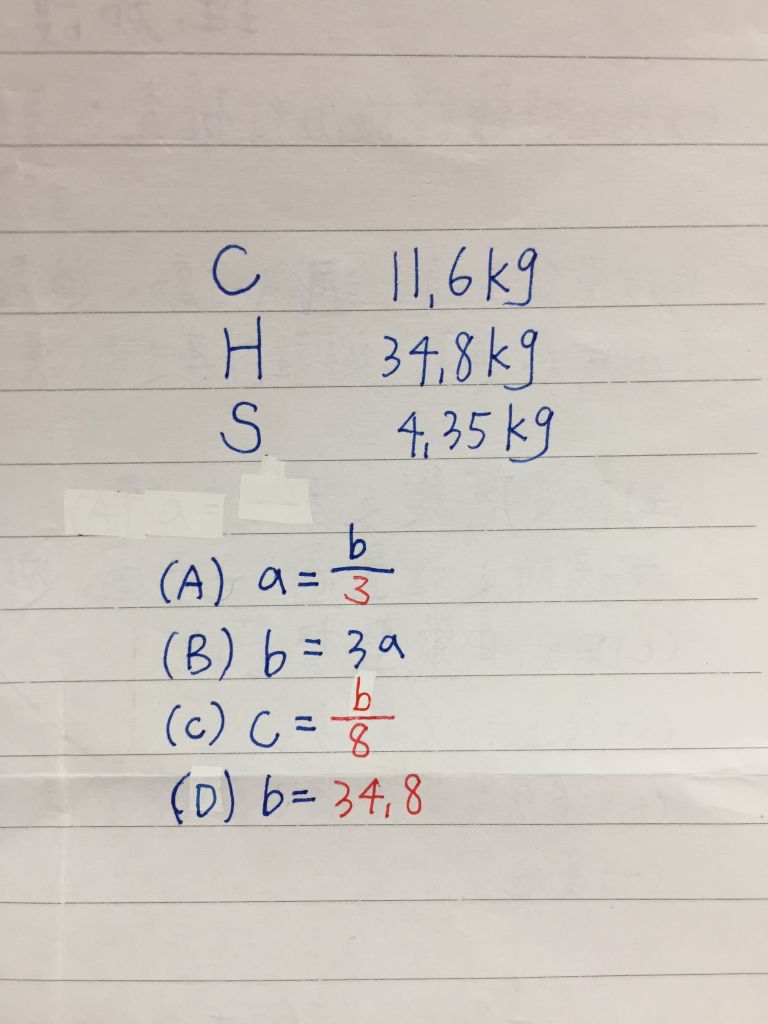 C 11,6kg
H 34,8kg
S 4,35kg
(A) a = b/3
(B) b = 3a
(c) c = b/8
(D) b = 34,8